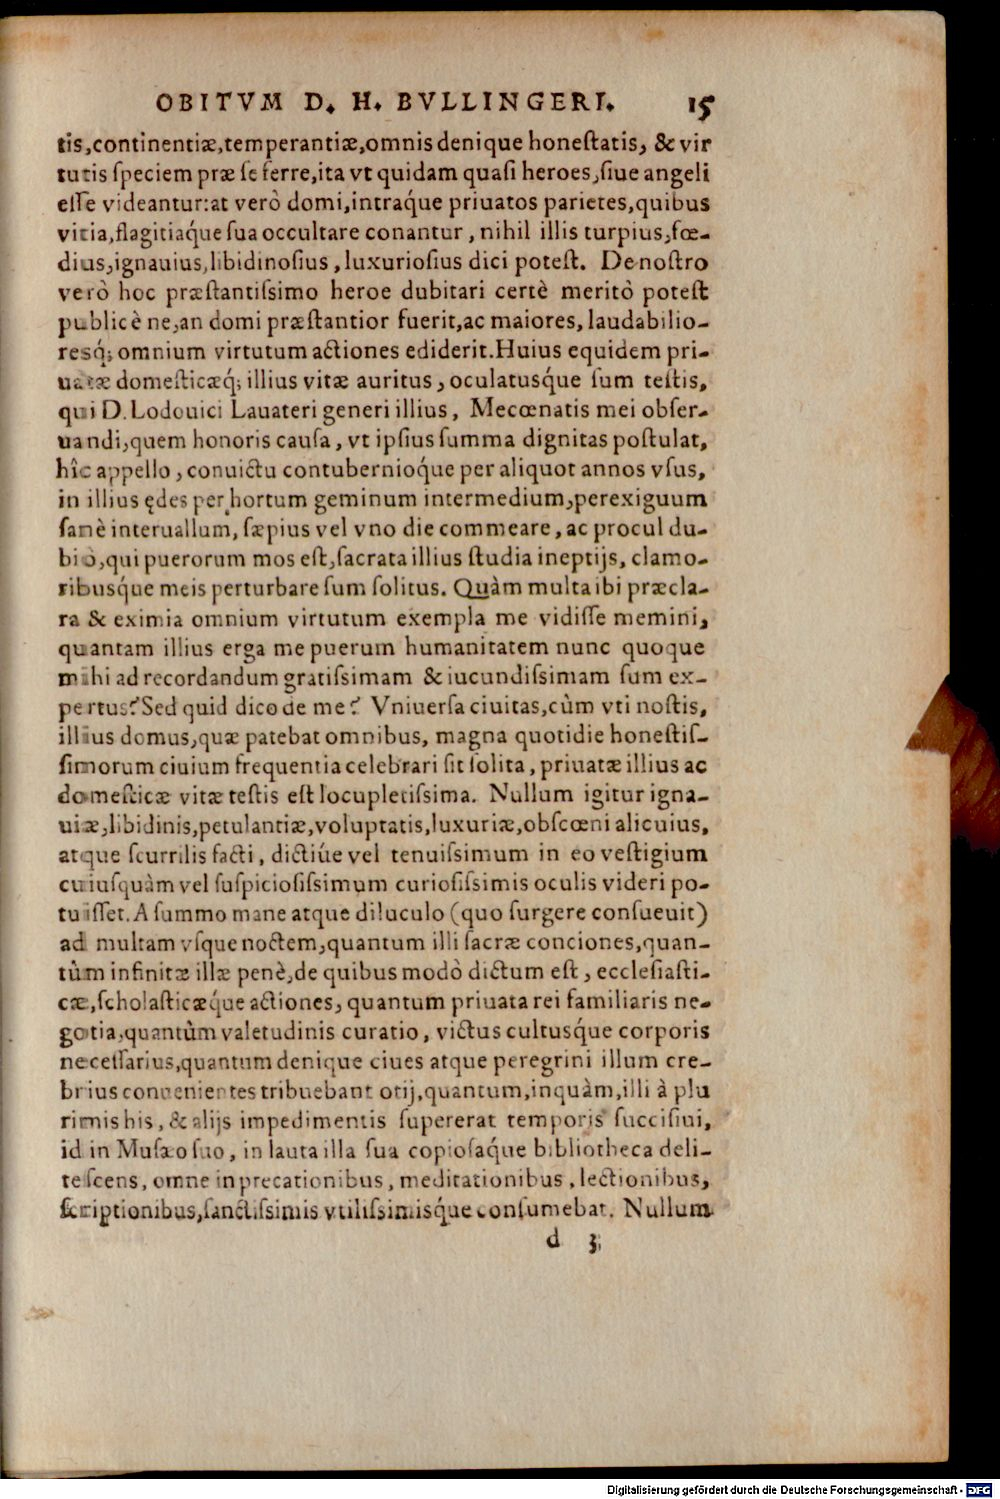 OBITVM D. H. BVLLINGERI. 15
tis,continentiæ,temperantiæ,omnis denique honeſtatis, & vir
tutis ſpeciem præ ſe ferre,ita vt quidam quaſi heroes,ſiue angeli
eſſe videantur:at verò domi,intraq́ue priuatos parietes,quibus
vitia,flagitiaq́ue ſua occultare conantur, nihil illis turpius,fœ-
dius,ignauius,libidinoſius, luxurioſius dici poteſt. De noſtro
verò hoc præſtantiſsimo heroe dubitari certè meritò poteſt
publicè ne,an domi præſtantior fuerit,ac maiores, laudabilio-
resq́; omnium virtutum actiones ediderit. Huius equidem pri-
uatæ domeſticæq́; illius vitæ auritus, oculatusq́ue ſum teſtis,
qui D. Lodouici Lauateri generi illius, Mecœnatis mei obſer-
uandi,quem honoris cauſa, vt ipſius ſumma dignitas poſtulat,
hîc appello, conuictu contubernioq́ue per aliquot annos vſus,
in illius ędes per hortum geminum intermedium,perexiguum
ſanè interuallum, ſæpius vel vno die commeare, ac procul du-
biò,qui puerorum mos eſt,ſacrata illius ſtudia ineptijs, clamo-
ribusq́ue meis perturbare ſum ſolitus. Quàm multa ibi præcla-
ra & eximia omnium virtutum exempla me vidiſſe memini,
quantam illius erga me puerum humanitatem nunc quoque
mihi ad recordandum gratiſsimam & iucundiſsimam ſum ex-
pertus? Sed quid dico de me? Vniuerſa ciuitas,cùm vti noſtis,
illius domus,quæ patebat omnibus, magna quotidie honeſtiſ-
ſimorum ciuium frequentia celebrari ſit ſolita, priuatæ illius ac
domeſticæ vitæ teſtis eſt locupletiſsima. Nullum igitur igna-
uiæ,libidinis,petulantiæ,voluptatis,luxuriæ,obſcœni alicuius,
atque ſcurrilis facti, dictiúe vel tenuiſsimum in eo veſtigium
cuiuſquàm vel ſuſpicioſiſsimum curioſiſsimis oculis videri po-
tuiſſet. A ſummo mane atque diluculo (quo ſurgere conſueuit)
ad multam vſque noctem,quantum illi ſacræ conciones,quan-
tùm infinitæ illæ penè,de quibus modò dictum eſt, eccleſiaſti-
cæ,ſcholaſticæq́ue actiones, quantum priuata rei familiaris ne-
gotia,quantùm valetudinis curatio, victus cultusq́ue corporis
neceſſarius,quantum denique ciues atque peregrini illum cre-
brius conuenientes tribuebant otij,quantum,inquàm,illi à plu
rimis his, & alijs impedimentis ſupererat temporis ſucciſiui,
id in Muſæo ſuo, in lauta illa ſua copioſaq́ue bibliotheca deli-
teſcens, omne in precationibus, meditationibus, lectionibus,
ſcriptionibus,ſanctiſsimis vtiliſsimisq́ue conſumebat. Nullum
d 3
Digitalisierung gefördert durch die Deutsche Forschungsgemeinschaft - DFG